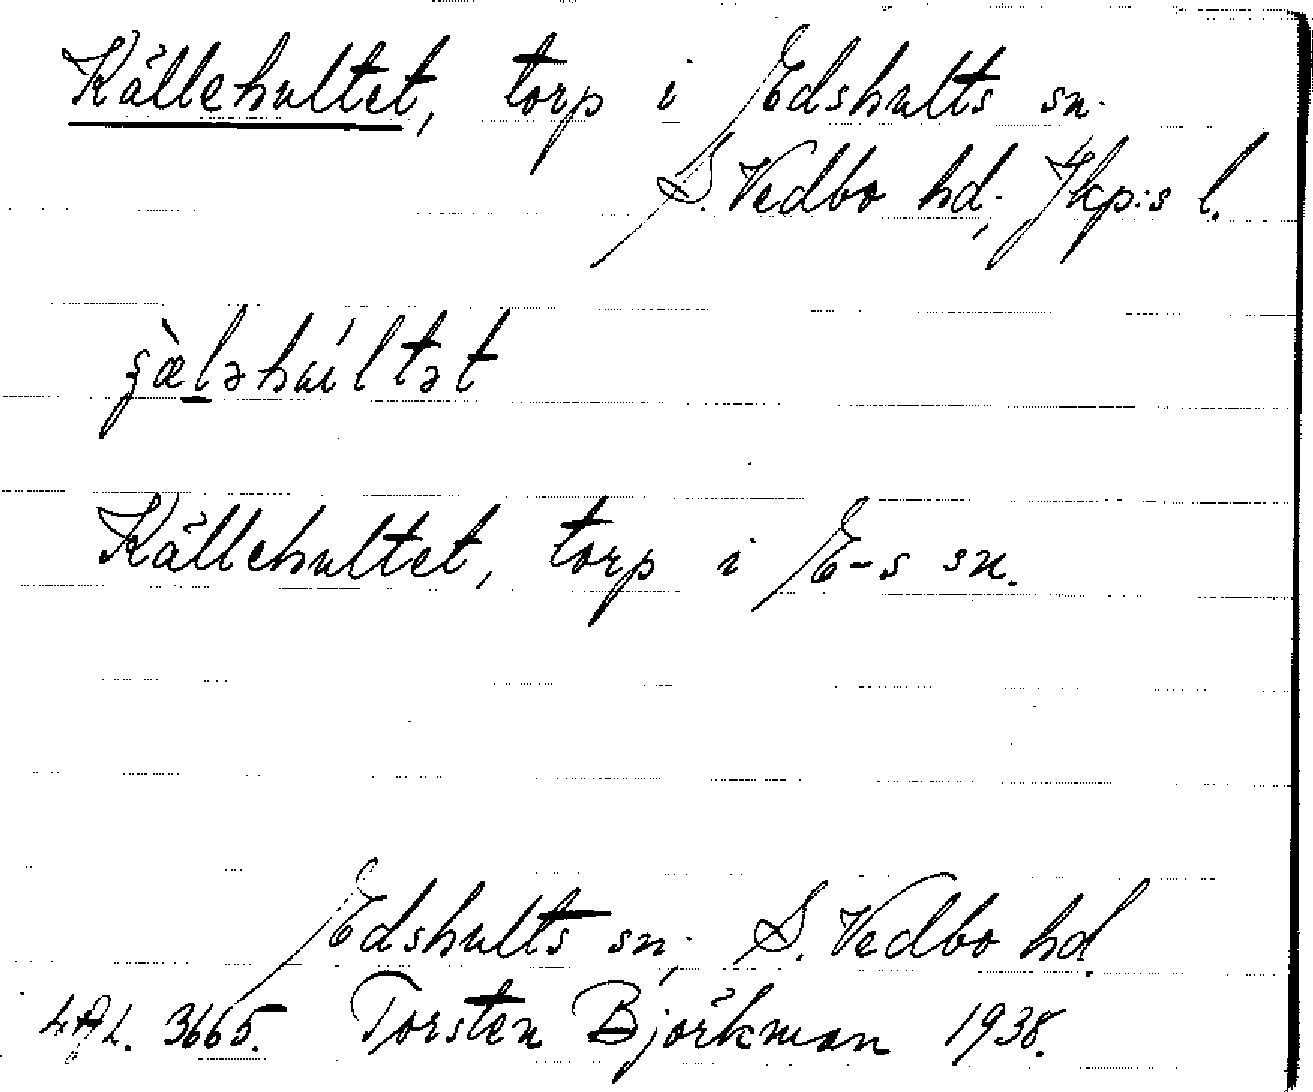 Källehultet, torp i Edshults sn.
S. Vedbo hd., Jkp:s l.
Källehultet, torp i E-s sn.
Edshults sn., S. Vedbo hd.
LAL. 3665. Torsten Björkman 1938.